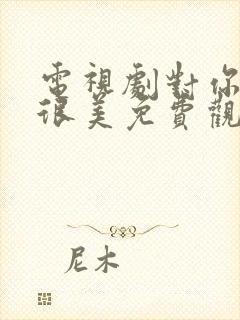 電視劇對你
很美免費觀
尼木